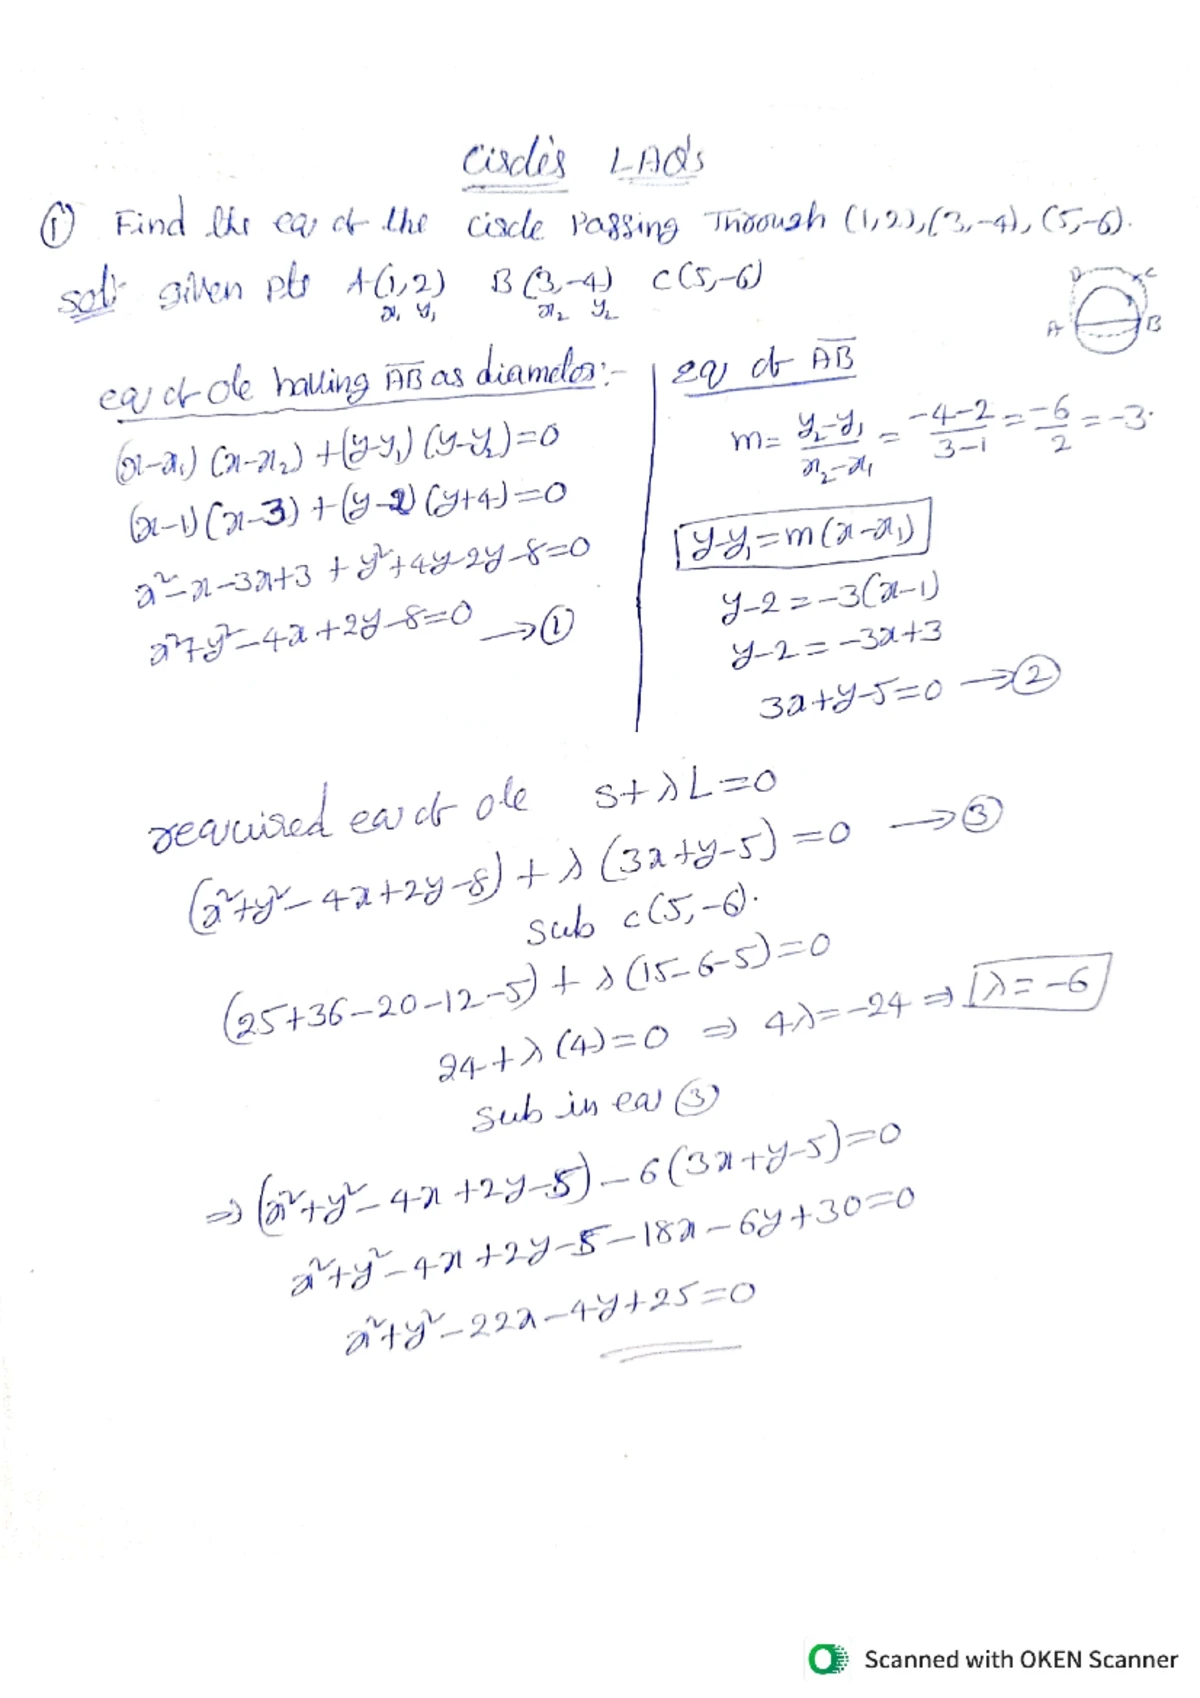 Circles LAQ's
① Find the eq of the circle passing Through (1,2), (3,-4), (5,-6).
sol:- given pts A(1,2) B(3,-4) C(5,-6)
x₁ y₁ x₂ y₂
D C
A B
eq of ole having A̅B̅ as diameter:-
(x-x₁) (x-x₂) + (y-y₁) (y-y₂)=0
(x-1) (x-3) + (y-2) (y+4)=0
x²-x-3x+3 + y²+4y-2y-8=0
x²+y²-4x+2y-8=0 → ①
eq of A̅B̅
m= (y₂-y₁)/(x₂-x₁) = (-4-2)/(3-1) = -6/2 = -3.
y-y₁=m(x-x₁)
y-2=-3(x-1)
y-2=-3x+3
3x+y-5=0 → ②
required eq of ole S+λL=0
(x²+y²-4x+2y-8)+λ(3x+y-5)=0 → ③
sub c(5,-6).
(25+36-20-12-5)+λ(15-6-5)=0
24+λ(4)=0 ⇒ 4λ=-24 ⇒ λ=-6
sub in eq ③
⇒ (x²+y²-4x+2y-5)-6(3x+y-5)=0
x²+y²-4x+2y-5-18x-6y+30=0
x²+y²-22x-4y+25=0
Scanned with OKEN Scanner